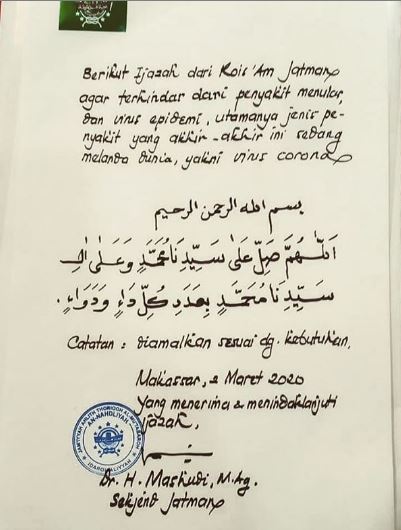 Berikut Ijazah dari Rois 'Am Jatman
agar terhindar dari penyakit menular,
dan virus epidemi, utamanya jenis pe-
nyakit yang akhir-akhir ini sedang
melanda dunia, yakni virus corona
بسم الله الرحمن الرحيم
اَللّٰهُمَّ صَلِّ عَلٰى سَيِّدِنَا مُحَمَّدٍ وَعَلٰى اٰلِ
سَيِّدِنَا مُحَمَّدٍ بِعَدَدِ كُلِّ دَاءٍ وَدَوَاءٍ.
Catatan : diamalkan sesuai dg. kebutuhan.
Makassar, 2 Maret 2020
Yang menerima & menindaklanjuti
ijazah,
JAM'IYYAH AHLITH THORIQOH AL-MU'TABAROH
AN-NAHDLIYAH
IDAROH ALIYYAH
Dr. H. Mashudi, M.Ag.
Sekjend Jatman